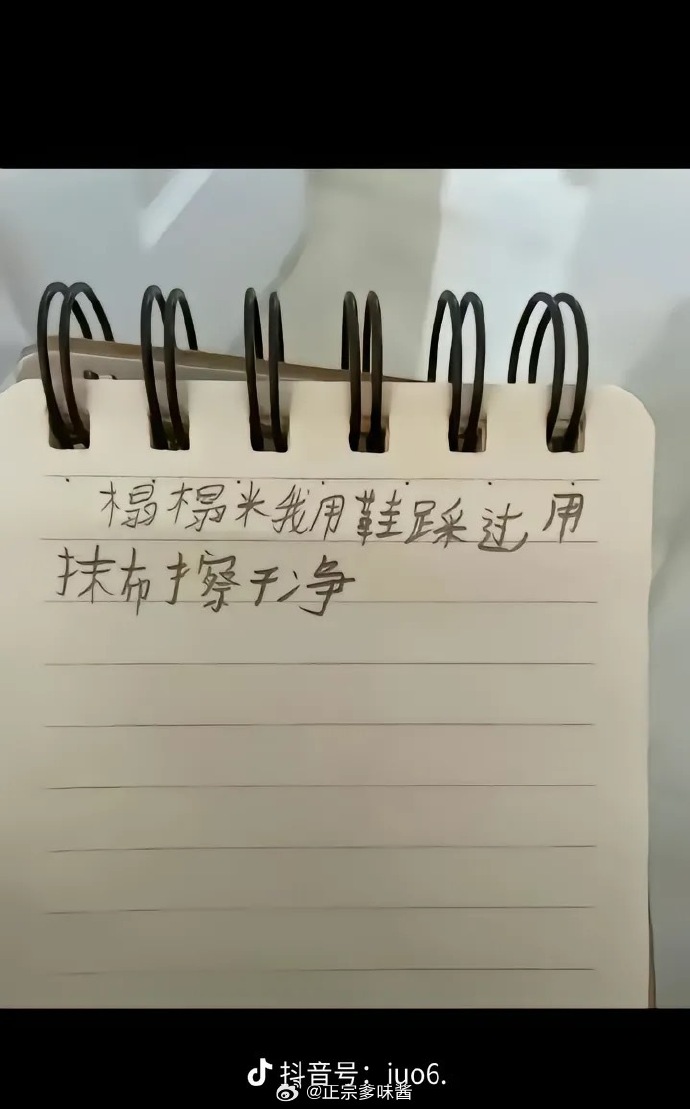 榻榻米我用鞋踩过用
抹布擦干净
抖音号：iuo6.
@正宗爹味酱